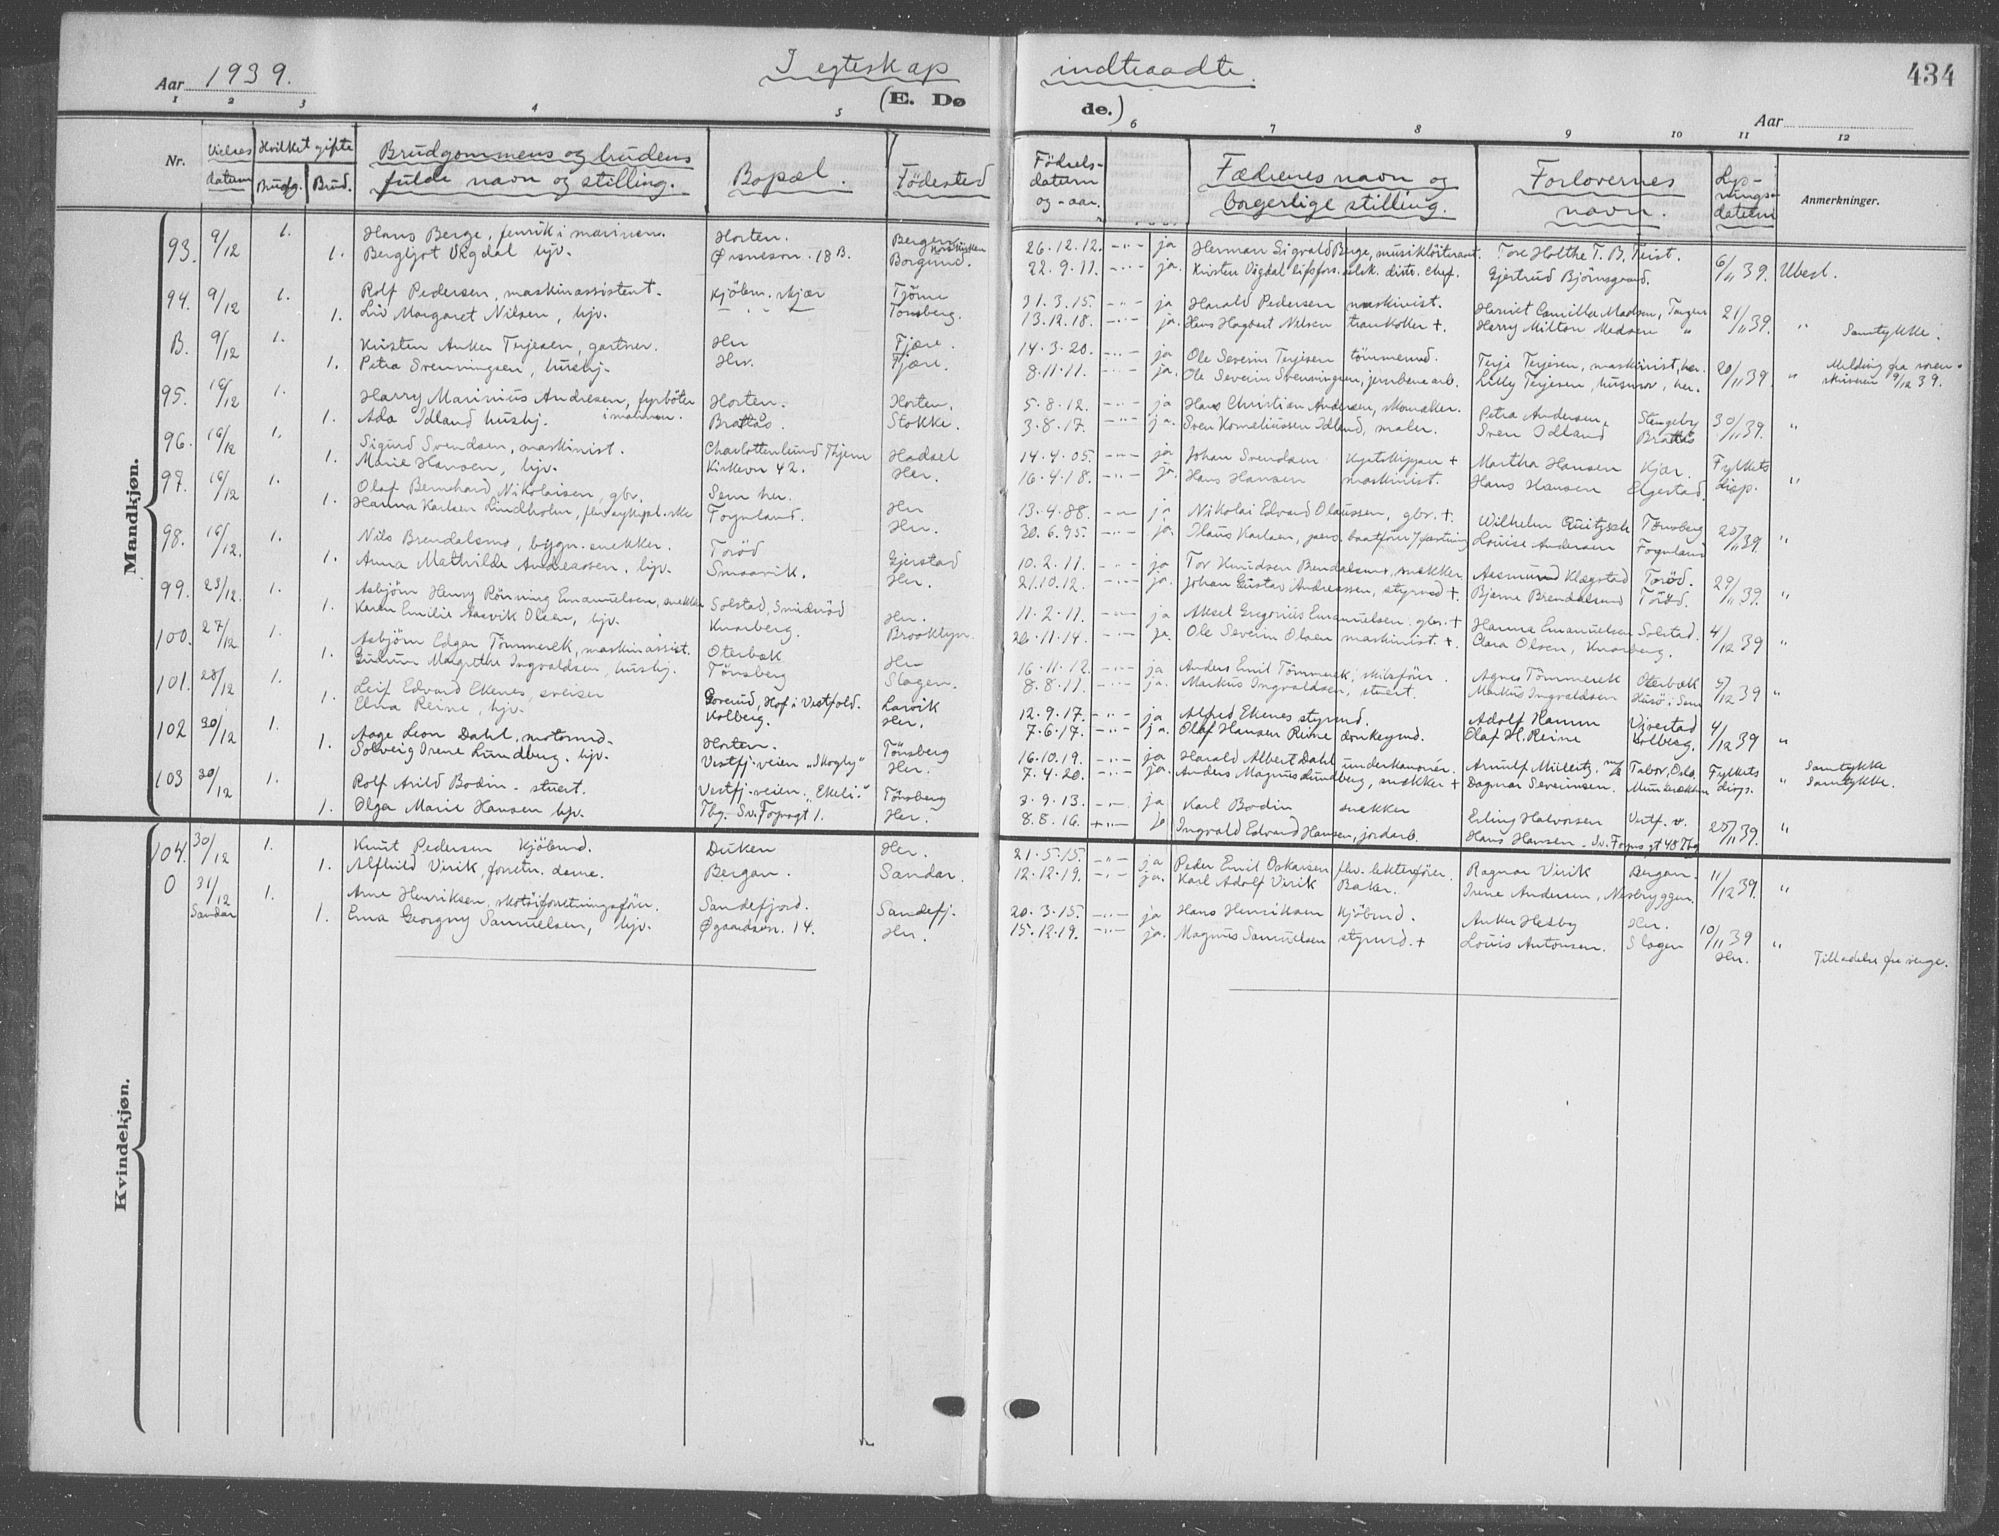 Aar 1939. I egteskap indtraadte. 434
(E. Døde.) Aar
1 2 3 4 5 6 7 8 9 10 11 12
Nr. Vielses datum Hvilket gifte Brudg. Brud. Brudgommens og brudens fulde navn og stilling. Bopæl. Fødested Fødselsdatum og -aar. Fædrenes navn og borgerlige stilling. Forlovernes navn. Lysningsdatum Anmerkninger.
Mandkjøn.
93. 9/12 1. Hans Berge, fenrik i marinen. Horten. Bergen 26.12.12. -"- ja Herman Sigvald Berge, Tore Holthe T. B. Teist. 6/11 39. Ubest.
1. Bergljot Vigdal hjv. Ørsneson. 18 B. Borgund. 22.9.11. -"- ja. Kristen Vigdal distr. chef. Gjertrud Björnsgaard.
94. 9/12 1. Rolf Pedersen, maskinassistent. Kjöbm. skjær Tjöme 31.3.15. -"- ja Harald Pedersen maskinist. Harriet Camilla Madsen, 21/11 39. "
1. Liv Margaret Nilsen, hjv. - " - Tönsberg. 13.12.18. -"- ja. Hans Hagbart Nilsen trankoker +. Harry Milton Madsen " Samtykke.
B. 9/12 1. Kristen Anker Terjesen, gartner. Her Fjære. 14.3.20. -"- ja Ole Severin Terjesen tömmermd. Terje Terjesen, maskinist, her. 20/11 39. " Melding fra sorenskriveren 9/12 39.
1. Petra Svenningsen, hushj. Her. Fjære. 8.11.11. -"- ja. Ole Severin Svenningsen, jernbanearb. Lilly Terjesen, husmor, her.
95. 16/12 1. Harry Marinius Andresen, fyrböter i marinen. Horten. Horten. 5.8.12. -"- ja Hans Christian Andersen, skomaker. Petra Andersen, 30/11 39. "
1. Ada Idland hushj. Brattås. Stokke. 3.8.17 -"- ja. Sven Korneliussen Idland, maler. Sven Idland, Brattås
96. 16/12 1. Sigurd Svendsen, maskinist. Charlottenlund Hadsel 14.4.05. -"- ja Johan Svendsen Kystskipper + Martha Hansen Kjær. Fylkets disp. "
1. Marie Hansen, hjv. Kirkevn 42. Her. 16.4.18. -"- ja. Hans Hansen maskinist. Hans Hansen Elgestad.
97. 16/12 1. Olaf Bernhard Nikolaisen, gbr. Sem her. Her 13.4.88. -"- ja Nikolai Edvard Olaussen, gbr. +. Wilhelm Tönsberg 25/11 39. "
1. Hanna Karlsen Lindholm, Föynland. Her. 30.6.95. -"- ja. Louise Andersen Föynland
98. 16/12. 1. Nils Brendalsmo, bygn. snekker. Toröd Gjerstad 10.2.11. -"- ja Tor Knudsen Brendalsmo, snekker. Aasmund Klægstad Toröd. 29/11 39. "
1. Anna Mathilde Andreassen, hjv. Smaavik. Her. 21.10.12. -"- ja. Johan Gustav Andreassen, styrmd +. Bjarne Brendalsmo Toröd.
99. 23/12. 1. Asbjörn Henry Rönning Emanuelsen, snekker Solstad, Smidsröd Her. 11.2.11. -"- ja Aksel Gregorius Emanuelsen gbr. + Hanna Emanuelsen Solstad. 4/12 39. "
1. Karen Emilie Aasvik Olsen, hjv. Knarberg. Brooklyn. 26.11.14. -"- ja. Ole Severin Olsen maskinist. + Clara Olsen, Knarberg.
100. 27/12 1. Asbjörn Edgar Tömmerek, maskinassist. Oterbæk Her 16.11.12. -"- ja Anders Emil Tömmerek, Agnes Tömmerek Oterbæk 5/12 39 "
1. Margrethe Ingvaldsen, hushj. Tönsberg Slagen. 8.8.11. -"- ja. Markus Ingvaldsen, stuert. Markus Ingvaldsen Husö i Sem
101. 28/12 1. Leif Edvard Ekenes, sveiser Hof i Vestfold. Larvik 12.9.17. -"- ja Alfred Ekenes styrmd. Adolf Hamm 4/12 39 "
1. Elna Reine, hjv. Kolberg. Her. 7.6.17. -"- ja. Olaf Hansen Reine donkeymd. Olaf H. Reine Kolberg.
102 30/12 1. Aage Leon Dahl, motormd. Horten. Tönsberg 16.10.19. -"- ja Harald Albert Dahl underkanonér. Arnulf Tabor, Oslo. Fylkets disp. " Samtykke
1. Solveig Irene Lundberg. hjv. Vestfj. veien "Skogly" Her. 7.4.20. -"- ja. Anders Magnus Lundberg, snekker + Dagmar Severinsen. Samtykke.
103 30/12 1. Rolf Arild Bodin. stuert. Vestfj. veien "Ekeli". Tönsberg 3.9.13. -"- ja Karl Bodin snekker Erling Halvorsen Vestf. v. 25/11 39. "
1. Olga Marie Hansen hjv. Tbg. Sv. Foynsgt 1. Her. 8.8.16. Ingvald Edvard Hansen, jordarb. Hans Hansen - Sv. Foyns gt 48 Tbg
Kvindekjøn.
104. 30/12 1. Knut Pedersen Kjöbmd. Duken Her. 21.5.15. -"- ja Peder Emil Oskarsen fhv. lekterförer. Ragnar Virik Bergan. 11/12 39. "
1. Alfhild Virik, forretn. dame. Bergan. Sandar. 12.12.19. -"- ja. Karl Adolf Virik Baker. Irene Andersen, Nesbryggen.
0 31/12 Sandar 1. Arne Henriksen, skotöiforretningsförer. Sandefjord. Sandefj. 20.3.15. -"- ja Hans Henriksen Kjöbmd. Anker Hesby Her. 10/11 39 Her. "
1. Erna Georgny Samuelsen, hjv. Øgaardsvn. 14. Her. 15.12.19. -"- ja. Magnus Samuelsen styrmd. + Louis Antonsen. Slagen Tilladelse fra verge.